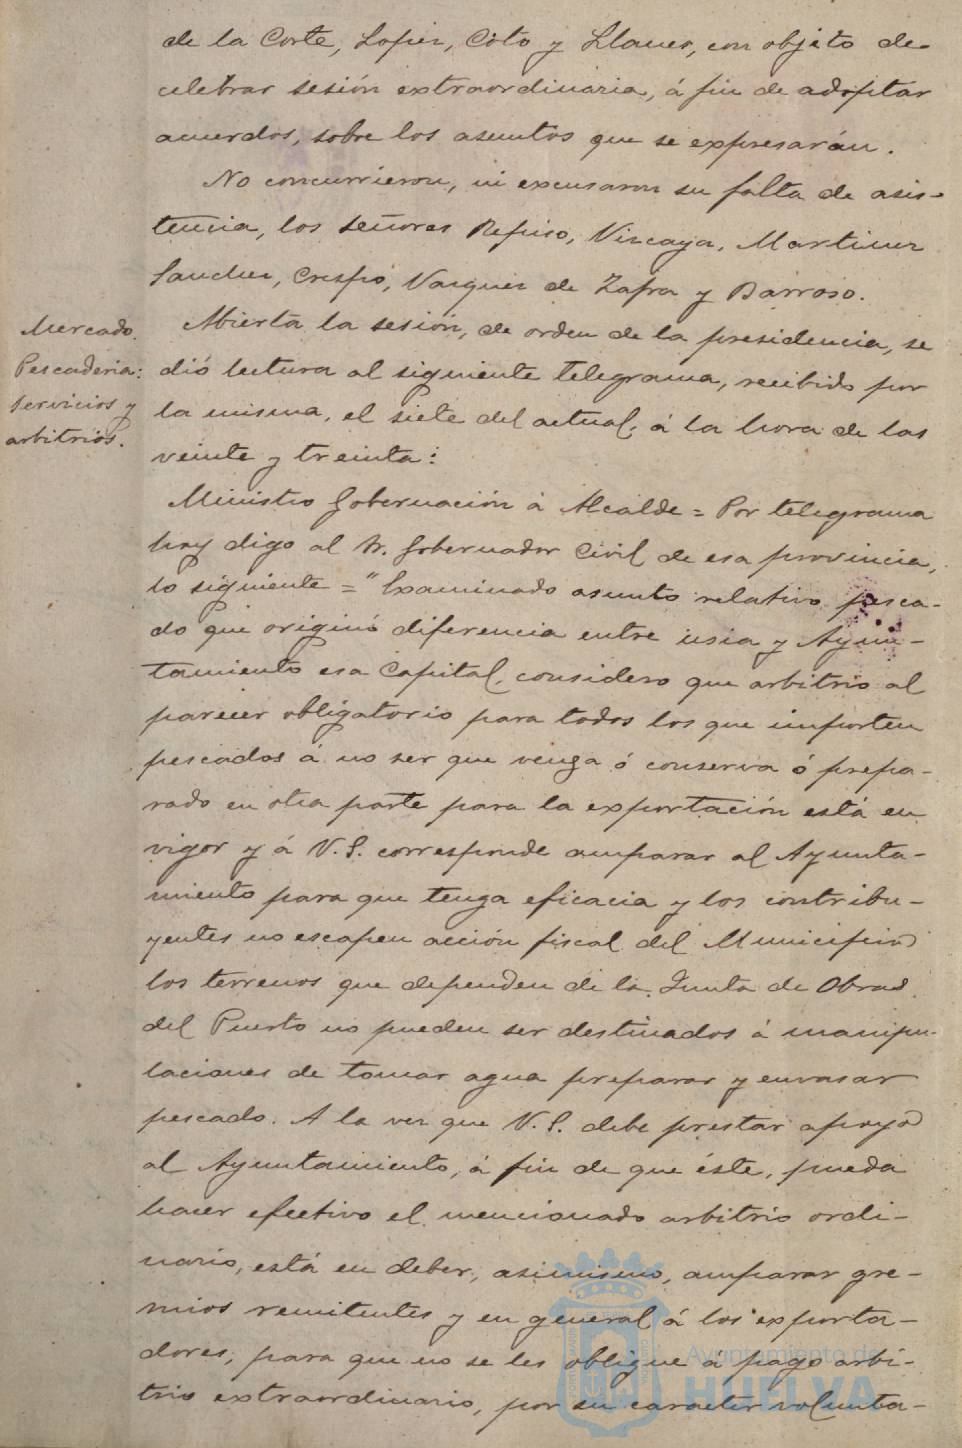 de la Corte, Lopez, Coto y Llanes, con objeto de
celebrar sesión extraordinaria, á fin de adoptar
acuerdos, sobre los asuntos que se expresarán.
No concurrieron, ni excusaron su falta de asis-
tencia, los señores Repiso, Vizcaya, Martinez
Sanchez, Crespo, Vazquez de Zafra y Barroso.
Mercado.
Pescaderia:
servicios y
arbitrios.
Abierta la sesión, de orden de la presidencia, se
dió lectura al siguiente telegrama, recibido por
la misma, el siete del actual, á la hora de las
veinte y treinta:
Ministro Gobernación á Alcalde = Por telegrama
hoy digo al Sr. Gobernador Civil de esa provincia,
lo siguiente = "Examinado asunto relativo pesca-
do que originó diferencia entre usia y Ayun-
tamiento esa Capital, considero que arbitrio al
parecer obligatorio para todos los que importen
pescados á no ser que venga ó conserva ó prepa-
rado en otra parte para la exportación está en
vigor y á V.S. corresponde amparar al Ayunta-
miento para que tenga eficacia y los contribu-
yentes no escapen acción fiscal del Municipio
los terrenos que dependen de la Junta de Obras
del Puerto no pueden ser destinados á manipu-
laciones de tomar agua preparar y envasar
pescado. A la vez que V.S. debe prestar apoyo
al Ayuntamiento, á fin de que éste, pueda
hacer efectivo el mencionado arbitrio ordi-
nario, está en deber, asimismo, amparar gre-
mios remitentes y en general á los exporta-
dores, para que no se les obligue á pago arbi-
trio extraordinario, por su caracter volunta-
Ayuntamiento de
HUELVA